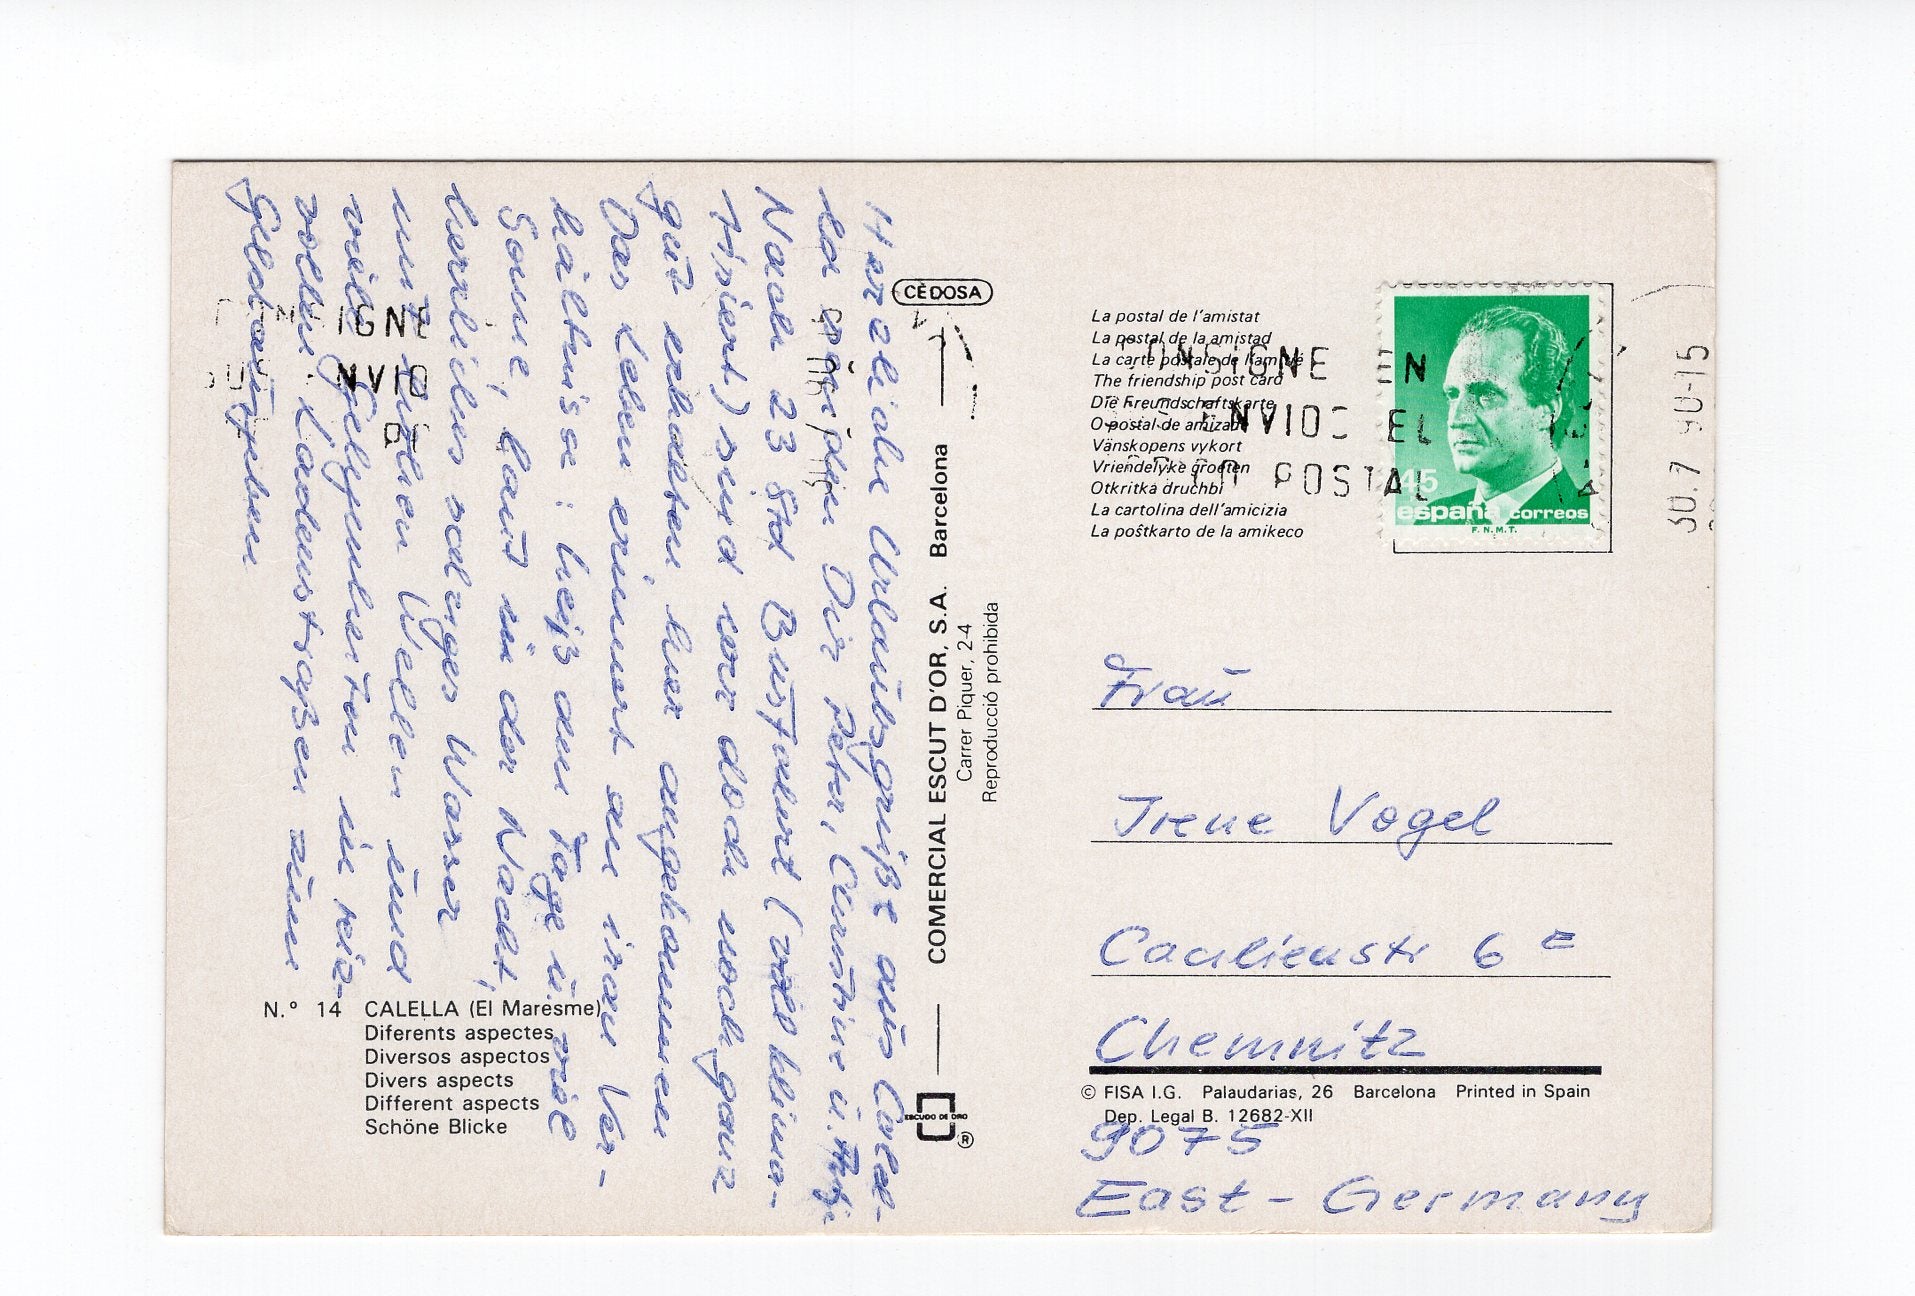 Herzliche Urlaubsgrüße aus Calel-
la senden Dir Peter, Christine u.
Nach 23 Std Busfahrt (voll klima-
tisiert) sind wir doch noch ganz
gut erhalten hier angekommen
Das Leben erinnert an iran Ver-
hältnisse: heiß am Tage u. viel
Sonne, laut in der Nacht,
herrliches salziges Wasser
mit hohen Wellen und
viele Gelegenheiten in rie-
sollen Ladenstraßen zum
Geldausgeben
N.º 14 CALELLA (El Maresme)
Diferents aspectes
Diversos aspectos
Divers aspects
Different aspects
Schöne Blicke
CÈDOSA
COMERCIAL ESCUT D'OR, S.A. Barcelona
Carrer Piquer, 2-4
Reproducció prohibida
ESCUDO DE ORO
®
La postal de l'amistat
La postal de la amistad
La carte postale de l'amitié
The friendship post card
Die Freundschaftskarte
O postal de amizad
Vänskopens vykort
Vriendelyke groeten
Otkritka druchbi
La cartolina dell'amicizia
La poŝtkarto de la amikeco
CONSIGNE EN
ENVIOS EL
POSTAL
45
españa correos
F.N.M.T.
30.7 90-15
Frau
Irene Vogel
Cäcilienstr 6 E
Chemnitz
© FISA I.G. Palaudarias, 26 Barcelona Printed in Spain
Dep. Legal B. 12682-XII
9075
East-Germany